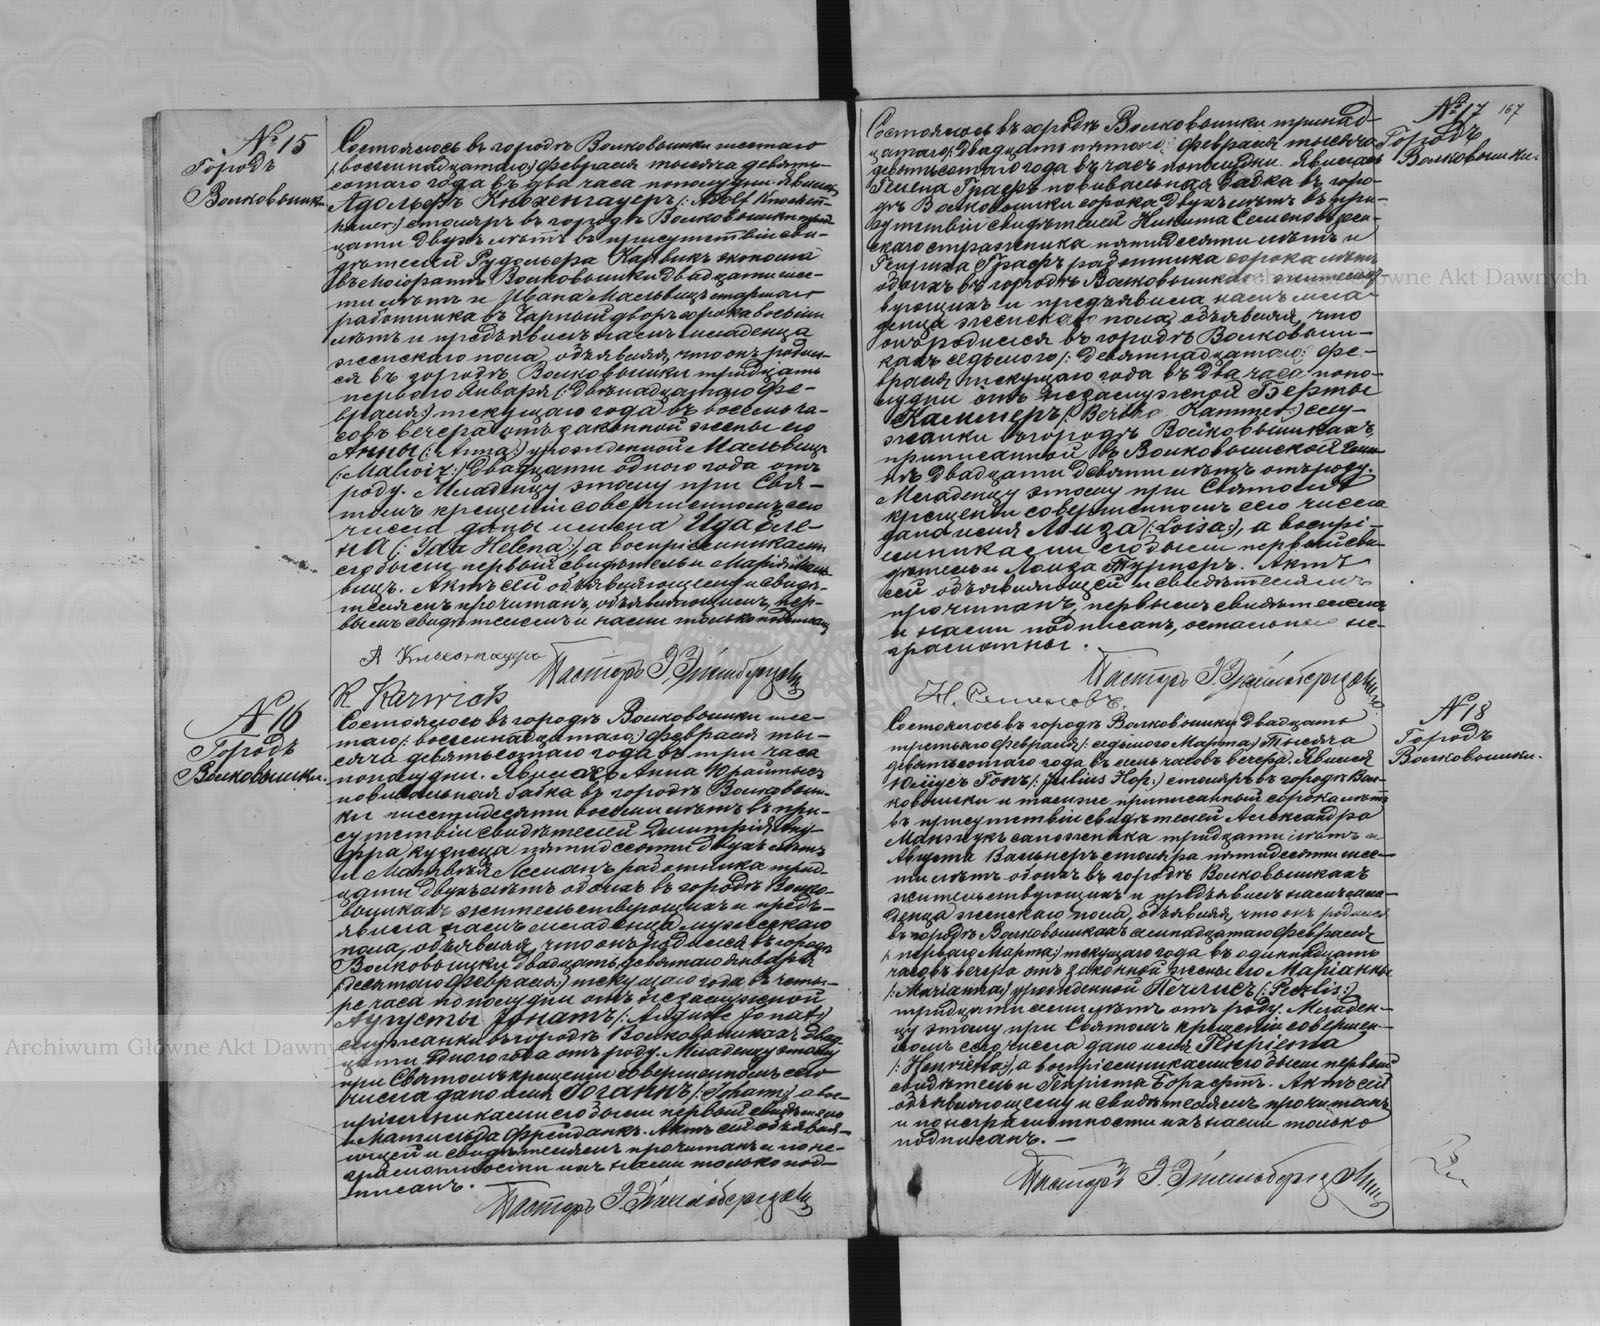 № 15
Городъ
Волковышки
Состоялось въ городѣ Волковышки шестаго
/:восемнадцатаго:/ февраля тысяча девять-
сотаго года въ два часа пополудни. Явился
Адольфъ Кнохенгауеръ /: Adolf Knochen-
hauer:/ столяръ въ городѣ Волковышки трид-
цати двухъ лѣтъ въ присутствіи сви-
дѣтелей Рудольфа Карвикъ эконома
Волковышки двадцати шес-
ти лѣтъ и Ивана Мальвицъ старшаго
работника въ Чарный дворъ сорока восьми
лѣтъ и предъявилъ намъ младенца
женскаго пола, объявляя, что онъ родил-
ся въ городѣ Волковышки тридцать
перваго Января /: Двѣнадцатаго Фе-
враля:/ текущаго года въ восемь ча-
совъ вечера отъ законной жены его
Анны /: Anna:/ урожденной Мальвицъ
/: Malwitz:/ двадцати одного года отъ
роду. Младенцу этому при Свя-
томъ крещеніи совершенномъ сего
числа даны имена Ида Еле-
на /: Ida Helena:/, а воспріемниками
его были первый свидѣтель и Марія Маль-
вицъ. Актъ сей объявляющему и свидѣ-
телямъ прочитанъ, объявляющимъ, пер-
вымъ свидѣтелемъ и нами только подписанъ
А Кнохенгауеръ
Пасторъ
R Karwick
№ 16
Городъ
Волковышки.
Состоялось въ городѣ Волковышки шес-
таго /: восемнадцатаго:/ февраля ты-
сяча девятьсотаго года въ три часа
пополудни. Явилась Анна Крайтысъ
повивальная бабка въ городѣ Волковыш-
ки шестидесяти восьми лѣтъ въ при-
сутствіи свидѣтелей Дмитрія
кузнеца пятидесяти двухъ лѣтъ
и Матвѣя Леманъ работника трид-
цати двухъ лѣтъ обоихъ въ городѣ Волко-
вышкахъ жительствующихъ и предъ-
явила намъ младенца мужескаго
пола, объявляя, что онъ родился въ городѣ
Волковышки двадцать девятаго Января
/: десятаго Февраля:/ текущаго года въ четы-
ре часа пополудни отъ незамужной
Аугусты Іонатъ /: Auguste Jonat:/
служанки въ городѣ Волковышкахъ двад-
цати одного года отъ роду. Младенцу этому
при Святомъ крещеніи совершенномъ сего
числа дано имя Іоганнъ /: Johann:/ а вос-
пріемниками его были первый свидѣтель
и Матильда Фрейданкъ. Актъ сей объявля-
ющей и свидѣтелямъ прочитанъ и по не-
грамотности ихъ нами только под-
писанъ.
Пасторъ
№ 17 167
Городъ
Волковышки.
Состоялось въ городѣ Волковышки тринад-
цатаго /: двадцать пятаго:/ февраля тысяча
девятьсотаго года въ часъ пополудни. Явилась
Гелена Графъ повивальная бабка въ горо-
дѣ Волковышки сорока двухъ лѣтъ въ при-
сутствіи свидѣтелей Никита Семеновъ зем-
скаго стражника пятидесяти лѣтъ и
Генриха Графъ работника сорока лѣтъ
обоихъ въ городѣ Волковышкахъ жительст-
вующихъ и предъявила намъ мла-
денца женскаго пола, объявляя, что
онъ родился въ городѣ Волковыш-
кахъ седьмого /: Девятнадцатаго:/ Фе-
враля текущаго года въ два часа попо-
лудни отъ незамужной Берты
Каммеръ /: Bertha Kammer:/ слу-
жанки въ городѣ Волковышкахъ,
приписанной въ Волковышской Гми-
нѣ двадцати девяти лѣтъ отъ роду.
Младенцу этому при Святомъ
крещеніи совершенномъ сего числа
дано имя Лоиза /: Loisa:/, а воспрі-
емниками его были первый сви-
дѣтель и Лоиза Турнеръ. Актъ
сей объявляющей и свидѣтелямъ
прочитанъ, первымъ свидѣтелемъ
и нами подписанъ, остальные не-
грамотны.
Пасторъ
Н. Семеновъ.
№ 18
Городъ
Волковышки.
Состоялось въ городѣ Волковышки двадцать
третьяго Февраля /: седьмого Марта:/ Тысяча
девятьсотаго года въ семь часовъ вечера. Явился
Юліусъ Гопъ /: Julius Hop:/ столяръ въ городѣ Вол-
ковышки и тамже приписанный сорока лѣтъ
въ присутствіи свидѣтелей Александра
Манжукъ сапожника тридцати лѣтъ и
Августа Вальнеръ столяра пятидесяти шес-
ти лѣтъ обоихъ въ городѣ Волковышкахъ
жительствующихъ и предъявилъ намъ мла-
денца женскаго пола, объявляя, что онъ родился
въ городѣ Волковышкахъ семнадцатаго Февраля
/: перваго Марта:/ текущаго года въ одиннадцать
часовъ вечера отъ законной жены его Маріанны
/: Marianna:/ урожденной Пеклисъ /: Peklis:/
тридцати семи лѣтъ отъ роду. Младен-
цу этому при Святомъ крещеніи совершен-
номъ сего числа дано имя Генріета
/: Henrietta:/, а воспріемниками его были первый
свидѣтель и Генріета Борхертъ. Актъ сей
объявляющему и свидѣтелямъ прочитанъ
и по неграмотности ихъ нами только
подписанъ. —
Пасторъ
Archiwum Główne Akt Dawnych
Archiwum Główne Akt Dawnych